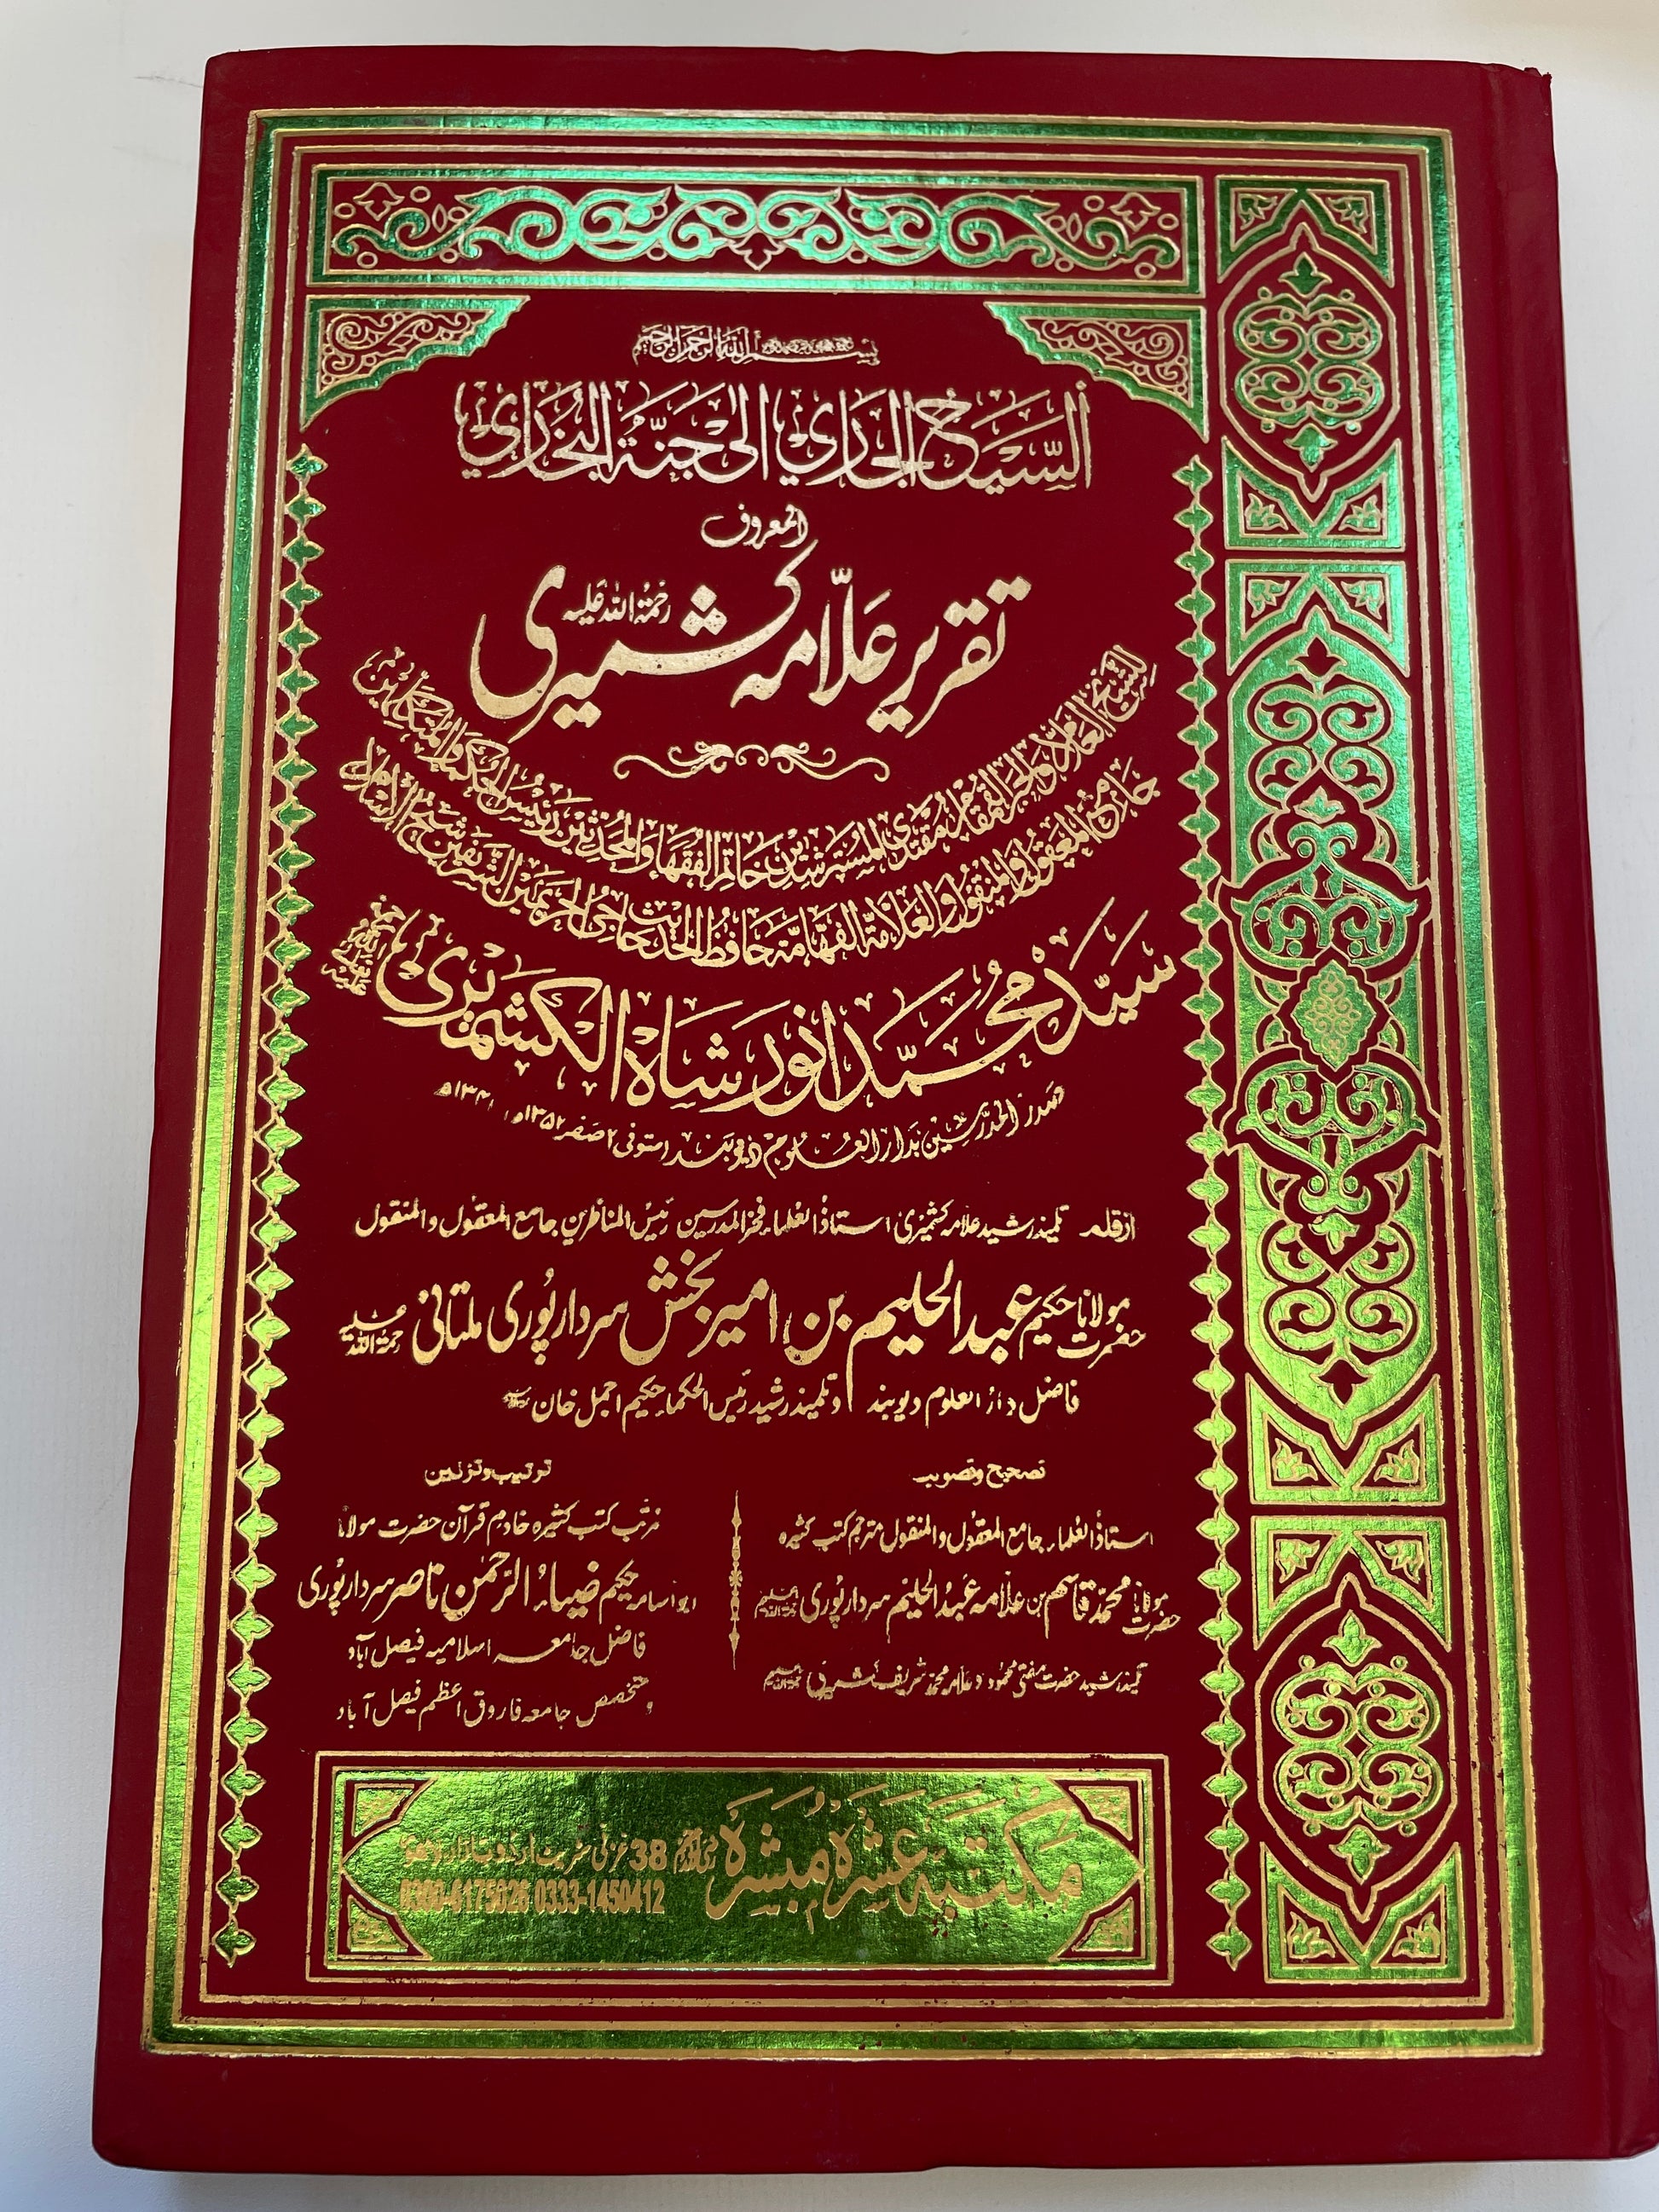 بسم الله الرحمن الرحيم
السَّيْحُ الجَارِي اِلٰى جَنَّةِ البُخَارِي
المعروف
تقریر علّامہ کشمیری رحمۃ اللہ علیہ
لِلشَّيْخِ العَلَّامِ وَالحَبْرِ القَمْقَامِ مُقْتَدَى المُسْتَرْشِدِيْنَ خَاتِمِ الفُقَهَاءِ وَالمُحَدِّثِيْنَ رَئِيْسِ الحُكَمَاءِ وَالمُتَكَلِّمِيْنَ
جَامِعِ المَعْقُوْلِ وَالمَنْقُوْلِ وَالعَلَّامَةِ الفَهَّامَةِ حَافِظِ الحَدِيْثِ حَاجِي الحَرَمَيْنِ الشَّرِيْفَيْنِ شَيْخِ الاِسْلَامِ
سَيِّد مُحَمَّد اَنْوَر شَاه الكَشْمِيْرِي
صدر المدرسین بدار العلوم دیوبند المتوفی ۲ صفر ۱۳۵۲ھ
از قلم تلمیذ رشید علامہ کشمیری استاذ العلماء فخر المدرسین رئیس المناظرین جامع المعقول والمنقول
حضرت مولانا حکیم عبد الحلیم بن امیر بخش سردار پوری ملتانی رحمۃ اللہ علیہ
فاضل دار العلوم دیوبند و تلمیذ رشید رئیس الحکماء حکیم اجمل خان
تصحیح وتصویب
استاذ العلماء جامع المعقول والمنقول مترجم کتب کثیرہ
حضرت مولانا محمد قاسم بن علامہ عبد الحلیم سردار پوری
تلمیذ رشید حضرت مفتی محمود و علامہ محمد شریف کشمیری
ترتیب وتزئین
مرتب کتب کثیرہ خادم قرآن حضرت مولانا
ابو اسامہ حکیم ضیاء الرحمٰن ناصر سردار پوری
فاضل جامعہ اسلامیہ فیصل آباد
و متخصص جامعہ فاروق اعظم فیصل آباد
مکتبہ عشرہ مبشرہ
38 غزنی سٹریٹ اردو بازار لاہور
0300-6175026 0333-1450412